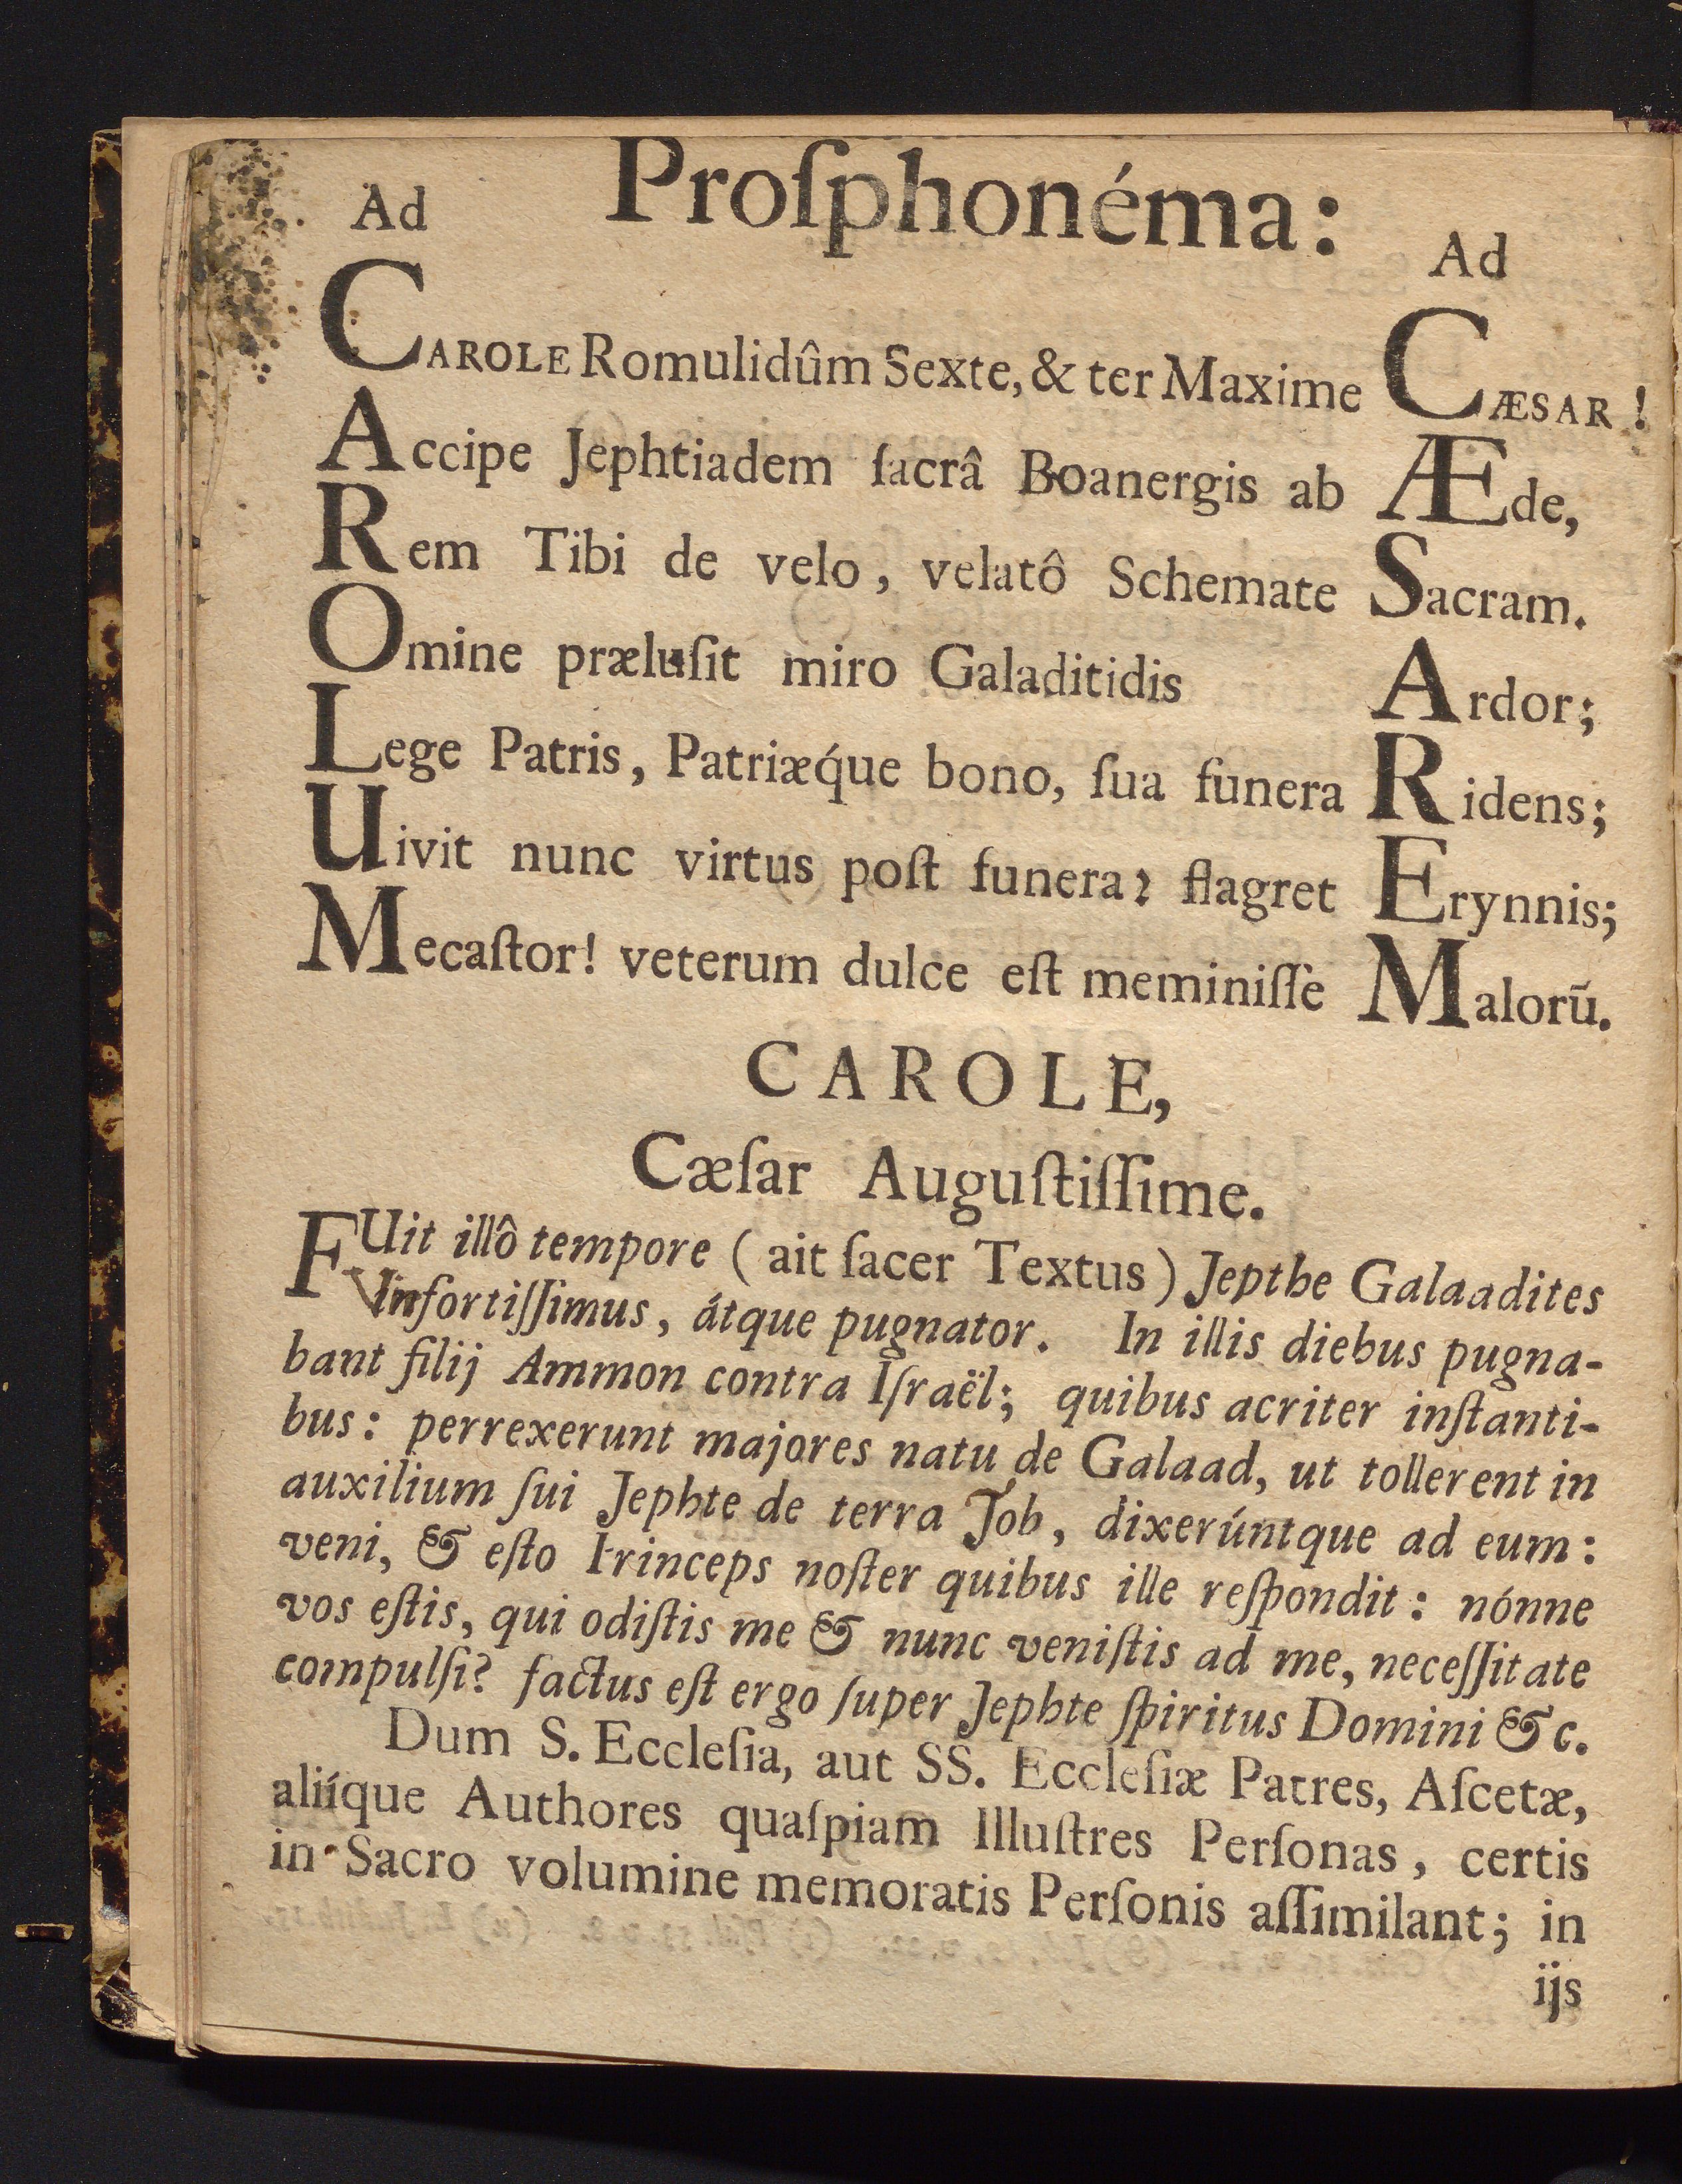 Ad Proſphonéma: Ad
CAROLE Romulidûm Sexte, & ter Maxime CÆSAR!
Accipe Jephtiadem ſacrâ Boanergis ab Æde,
Rem Tibi de velo, velatô Schemate Sacram.
Omine præluſit miro Galaditidis Ardor;
Lege Patris, Patriæq́ue bono, ſua funera Ridens;
Uivit nunc virtus poſt funera? flagret Erynnis;
Mecaſtor! veterum dulce eſt meminiſſè Malorũ.
CAROLE,
Cæſar Auguſtiſſime.
FUit illô tempore (ait ſacer Textus) Jepthe Galaadites
Vinfortiſſimus, átque pugnator. In illis diebus pugna-
bant filij Ammon contra Iſraël; quibus acriter inſtanti-
bus: perrexerunt majores natu de Galaad, ut tollerent in
auxilium ſui Jephte de terra Job, dixerúntque ad eum:
veni, & eſto Princeps noſter quibus ille reſpondit: nónne
vos eſtis, qui odiſtis me & nunc veniſtis ad me, neceſſitate
compulſi? factus eſt ergo ſuper Jephte ſpiritus Domini &c.
Dum S. Eccleſia, aut SS. Eccleſiæ Patres, Aſcetæ,
aliíque Authores quaſpiam Illuſtres Perſonas, certis
in Sacro volumine memoratis Perſonis aſſimilant; in
ijs